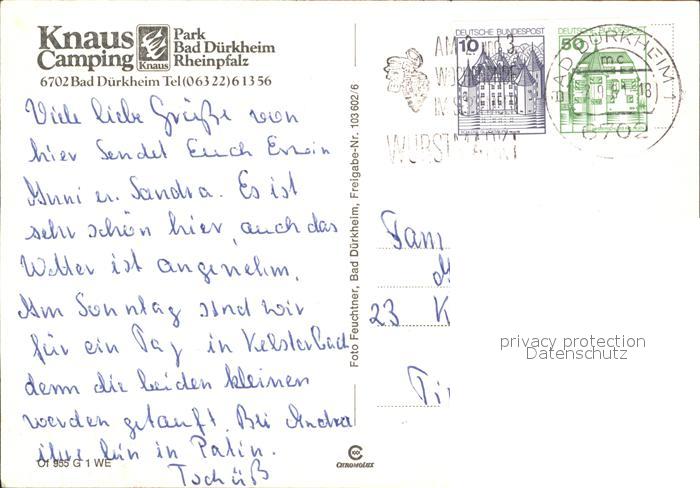 Knaus
Camping
Knaus
Park
Bad Dürkheim
Rheinpfalz
6702 Bad Dürkheim Tel (0 63 22) 6 13 56
Viele liebe Grüße von
hier Sendet Euch Erwin
u. Sandra. Es ist
sehr schön hier, auch das
Wetter ist angenehm.
Am Sonntag sind wir
für ein Tag in Kelsterbach
denn die beiden kleinen
werden getauft. Bei Andra
bin in Patin.
Tschüß
01 955 G 1 WE
Foto Feuchtner, Bad Dürkheim, Freigabe-Nr. 103602/6
CHROMOLUX
AM 2. und 3.
WOCHENENDE
IM SEPTEMBER
WURSTMARKT
DEUTSCHE BUNDESPOST
10
DEUTSCHE BUNDESPOST
50
BAD DÜRKHEIM 1
mc
6702
Fam
23 K
privacy protection
Datenschutz